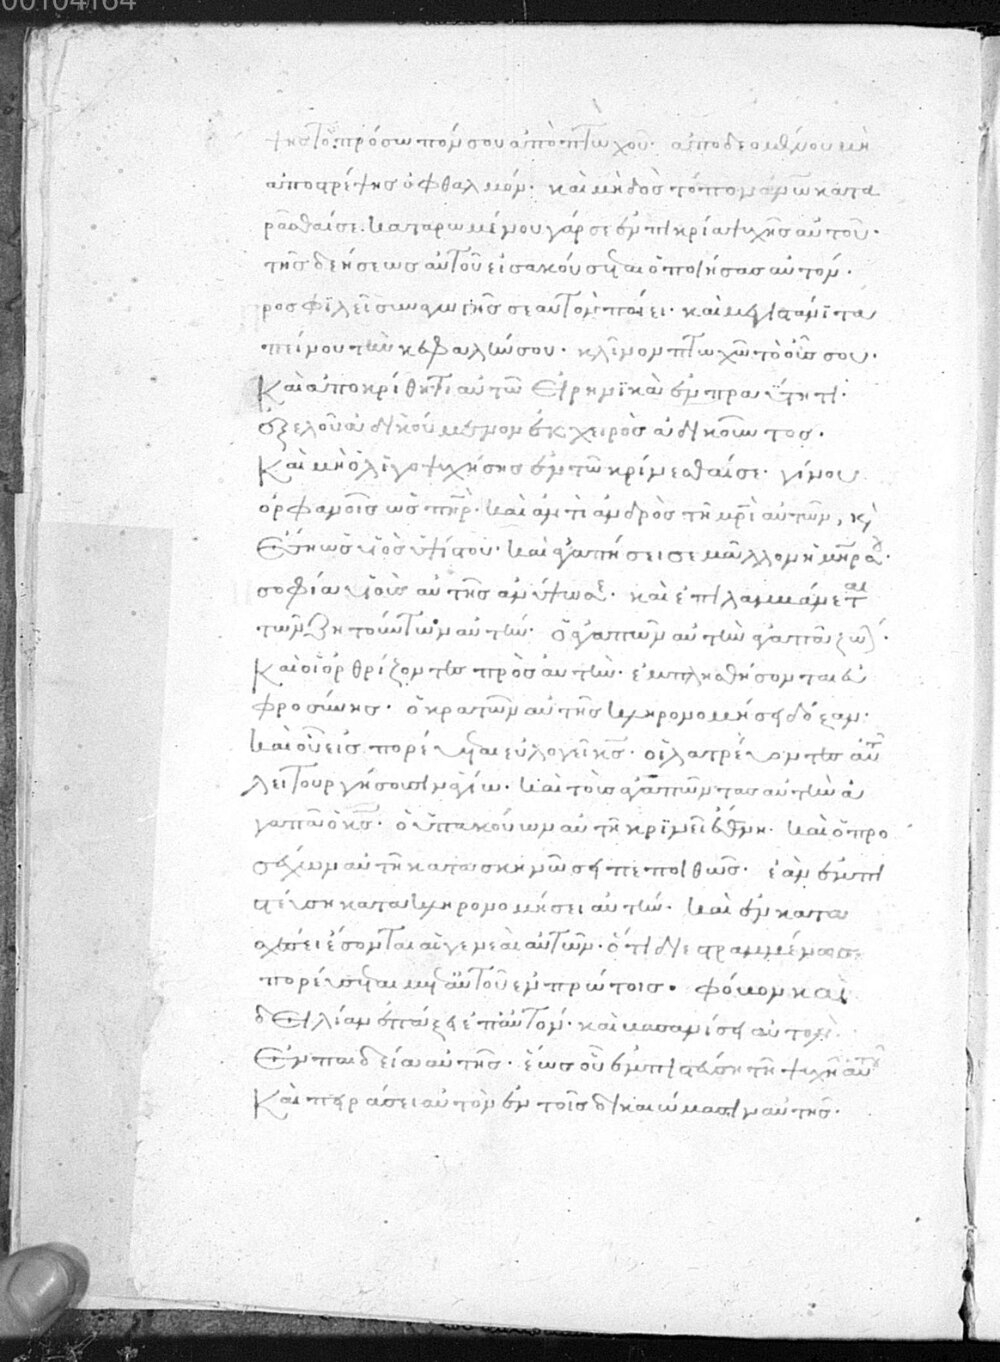 00104164
ψης τὸ πρόσωπόν σου ἀπὸ πτωχοῦ· ἀπο δεομένου μὴ
ἀποστρέψης ὀφθαλμόν· καὶ μὴ δὸς τόπον ἀνῶ κατα
ρᾶσθαί σε. καταρωμένου γάρ σε ἐν πικρία ψυχῆς αὐτοῦ·
τῆς δεήσεως αὐτοῦ εἰσακούσεται ὁ ποιήσας αὐτόν·
προσφιλεῖ συναγωγῆς σεαυτὸν ποίει· καὶ μεγιστάνι τα
πείνου τὴν κεφαλήν σου· κλῖνον πτωχῶ τὸ οὖς σου·
Καὶ ἀποκρίθητι αὐτῶ εἰρηνικὰ ἐν πραΰτητι·
ἐξελοῦ ἀδικούμενον ἐκ χειρὸς ἀδικοῦντος·
Καὶ μὴ ὀλιγοψυχήσης ἐν τῶ κρίνεσθαί σε· γίνου
ὀρφανοῖς ὡς πηρ· καὶ ἀντὶ ἀνδρὸς τῆ μρὶ αὐτῶν, κ
ἔση ὡς υἱὸς ὑψίστου· καὶ ἀγαπήσει σε μᾶλλον ἢ μηρ σου·
σοφία υἱοὺς αὐτῆς ἀνύψωσε· καὶ ἐπιλαμβάνεται
τῶν ζητούντων αὐτήν· ὁ ἀγαπῶν αὐτὴν ἀγαπᾶ ζωήν·
Καὶ οἱ ὀρθρίζοντες πρὸς αὐτὴν· ἐμπλησθήσονται εὐ
φροσύνης· ὁ κρατῶν αὐτῆς κληρονομήσει δόξαν·
καὶ οὗ εἰσπορεύεται εὐλογεῖ κς· οἱ λατρεύοντες αὐτῆ
λειτουργήσουσιν ἁγίω· καὶ τοὺς ἀγαπῶντας αὐτὴν ἀ
γαπᾶ ὁ κς· ὁ ὑπακούων αὐτῆ κρινεῖ ἔθνη· καὶ ὁ προ
σέχων αὐτῆ κατασκηνώσει πεποιθώς· ἐὰν ἐμπι
στεύση κατακληρονομήσει αὐτήν· καὶ ἐν κατα
σχέσει ἔσονται αἱ γενεαὶ αὐτῶν· ὅτι διεστραμμένως
πορεύσεται μετ αὐτοῦ ἐν πρώτοις· φόβον καὶ
δειλίαν ἐπάξει ἐπ αὐτόν· καὶ βασανίσει αὐτὸν
ἐν παιδεία αὐτῆς· ἕως οὗ ἐμπιστεύση τῆ ψυχῆ αὐτοῦ
Καὶ πειράσει αὐτὸν ἐν τοῖς δικαιώμασιν αὐτῆς·